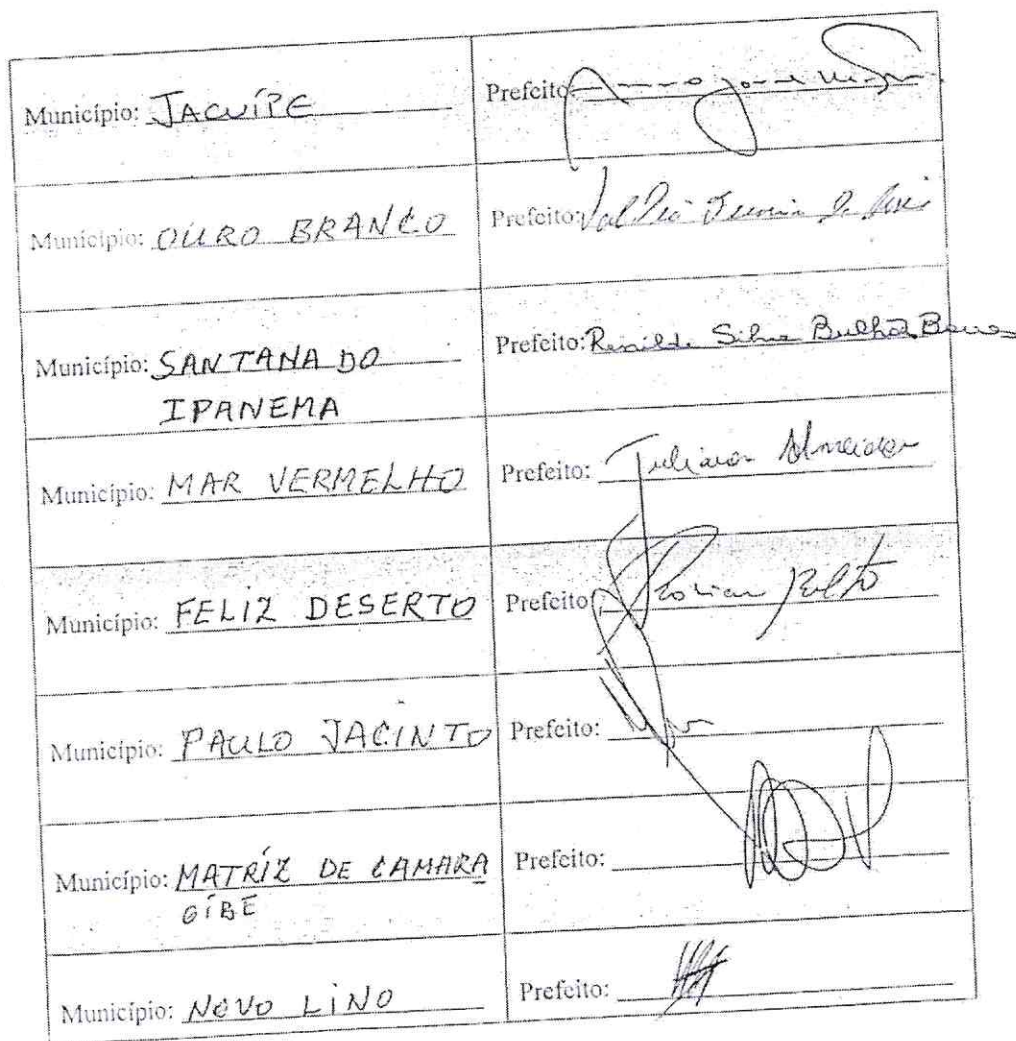 Município: JACUÍPE Prefeito:
Município: OURO BRANCO Prefeito:
Município: SANTANA DO Prefeito: Silva Bulhões
IPANEMA
Município: MAR VERMELHO Prefeito: Juliana Almeida
Município: FELIZ DESERTO Prefeito:
Município: PAULO JACINTO Prefeito:
Município: MATRÍZ DE CAMARA Prefeito:
GÍBE
Município: NOVO LINO Prefeito: